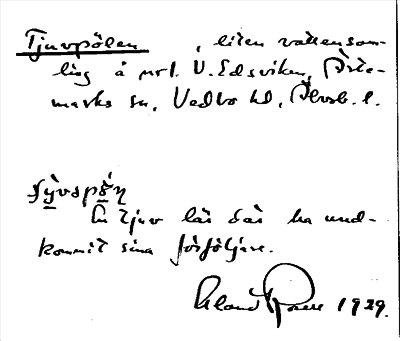 Tjuvpölen , liten vattensam-
ling å nrl. V. Edsviken, Ärte-
marks sn, Vedbo hd, Älvsb. l.
En tjuv lär där ha und-
kommit sina förföljare.
Erland Rosell 1929.